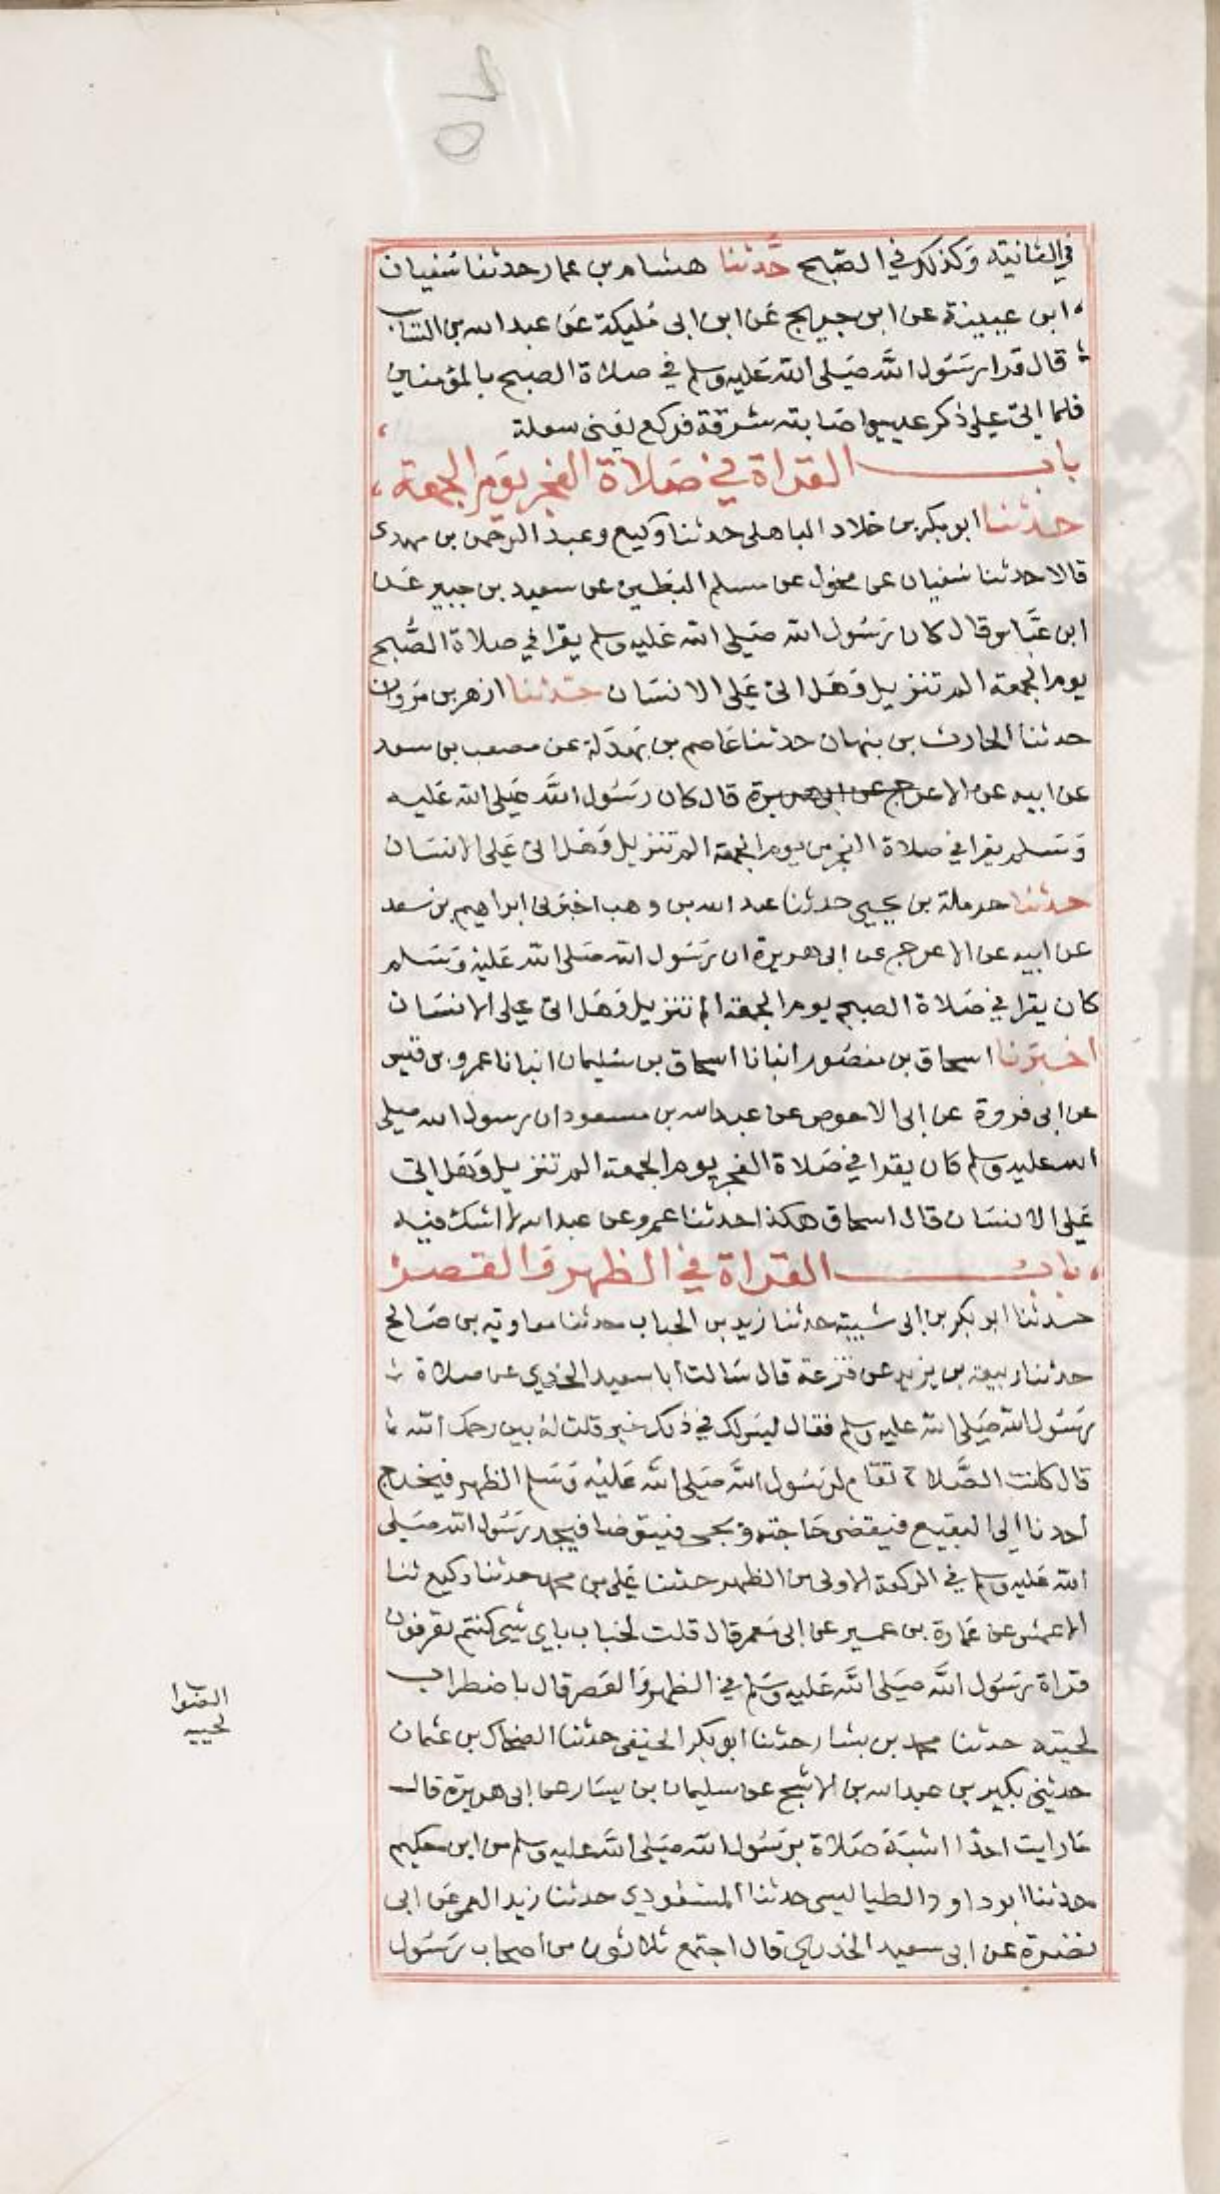 في الثانية وكذلك في الصبح حدثنا هشام بن عمار حدثنا سفيان
ابن عيينة عن ابن جريج عن ابن ابى مليكة عن عبد الله بن السائب
قال قرا رسول الله صلى الله عليه وسلم في صلاة الصبح بالمؤمنين
فلما اتى على ذكر عيسى اصابته شرقة فركع يعنى سعلة
باب القراة في صلاة الفجر يوم الجمعة
حدثنا ابو بكر بن خلاد الباهلى حدثنا وكيع وعبد الرحمن بن مهدى
قالا حدثنا سفيان عن مخول عن مسلم البطين عن سعيد بن جبير عن
ابن عباس قال كان رسول الله صلى الله عليه وسلم يقرا في صلاة الصبح
يوم الجمعة الم تنزيل وهل اتى على الانسان حدثنا ازهر بن مروان
حدثنا الحارث بن بنهان حدثنا عاصم بن بهدلة عن مصعب بن سعد
عن ابيه عن الاعرج عن ابى هريرة قال كان رسول الله صلى الله عليه
وسلم يقرا في صلاة الفجر من يوم الجمعة الم تنزيل وهل اتى على الانسان
حدثنا حرملة بن يحيى حدثنا عبد الله بن وهب اخبرنى ابراهيم بن سعد
عن ابيه عن الاعرج عن ابى هريرة ان رسول الله صلى الله عليه وسلم
كان يقرا في صلاة الصبح يوم الجمعة الم تنزيل وهل اتى على الانسان
اخبرنا اسحاق بن منصور انبانا اسحاق بن سليمان انبانا عمرو بن قيس
عن ابى فروة عن ابى الاحوص عن عبد الله بن مسعود ان رسول الله صلى
الله عليه وسلم كان يقرا في صلاة الفجر يوم الجمعة الم تنزيل وهل اتى
على الانسان قال اسحاق هكذا حدثنا عمرو عن عبد الله لا اشك فيه
باب القراة في الظهر والعصر
حدثنا ابو بكر بن ابى شيبة حدثنا زيد بن الحباب حدثنا معاوية بن صالح
حدثنا ربيعة بن يزيد عن قزعة قال سالت ابا سعيد الخدري عن صلاة
رسول الله صلى الله عليه وسلم فقال ليس لك في ذلك خير قلت له بين رحمك الله
قال كانت الصلاة تقام لرسول الله صلى الله عليه وسلم الظهر فيخرج
احدنا الى البقيع فيقضى حاجته ويجى فيتوضا فيجد رسول الله صلى
الله عليه وسلم في الركعة الاولى من الظهر حدثنا على بن محمد حدثنا وكيع ثنا
الاعمش عن عمارة بن عمير عن ابى معمر قال قلت لخباب باي شي كنتم تعرفون
قراة رسول الله صلى الله عليه وسلم في الظهر والعصر قال باضطراب
لحيته حدثنا محمد بن بشار حدثنا ابو بكر الحنفى حدثنا الضحاك بن عثمان
حدثنى بكير بن عبد الله بن الاشج عن سليمان بن يسار عن ابى هريرة قال
ما رايت احدا اشبه صلاة برسول الله صلى الله عليه وسلم من ابن حكيم
حدثنا ابو داود الطيالسى حدثنا المسعودي حدثنا زيد العمى عن ابى
نضرة عن ابى سعيد الخدري قال اجتمع ثلاثون من اصحاب رسول